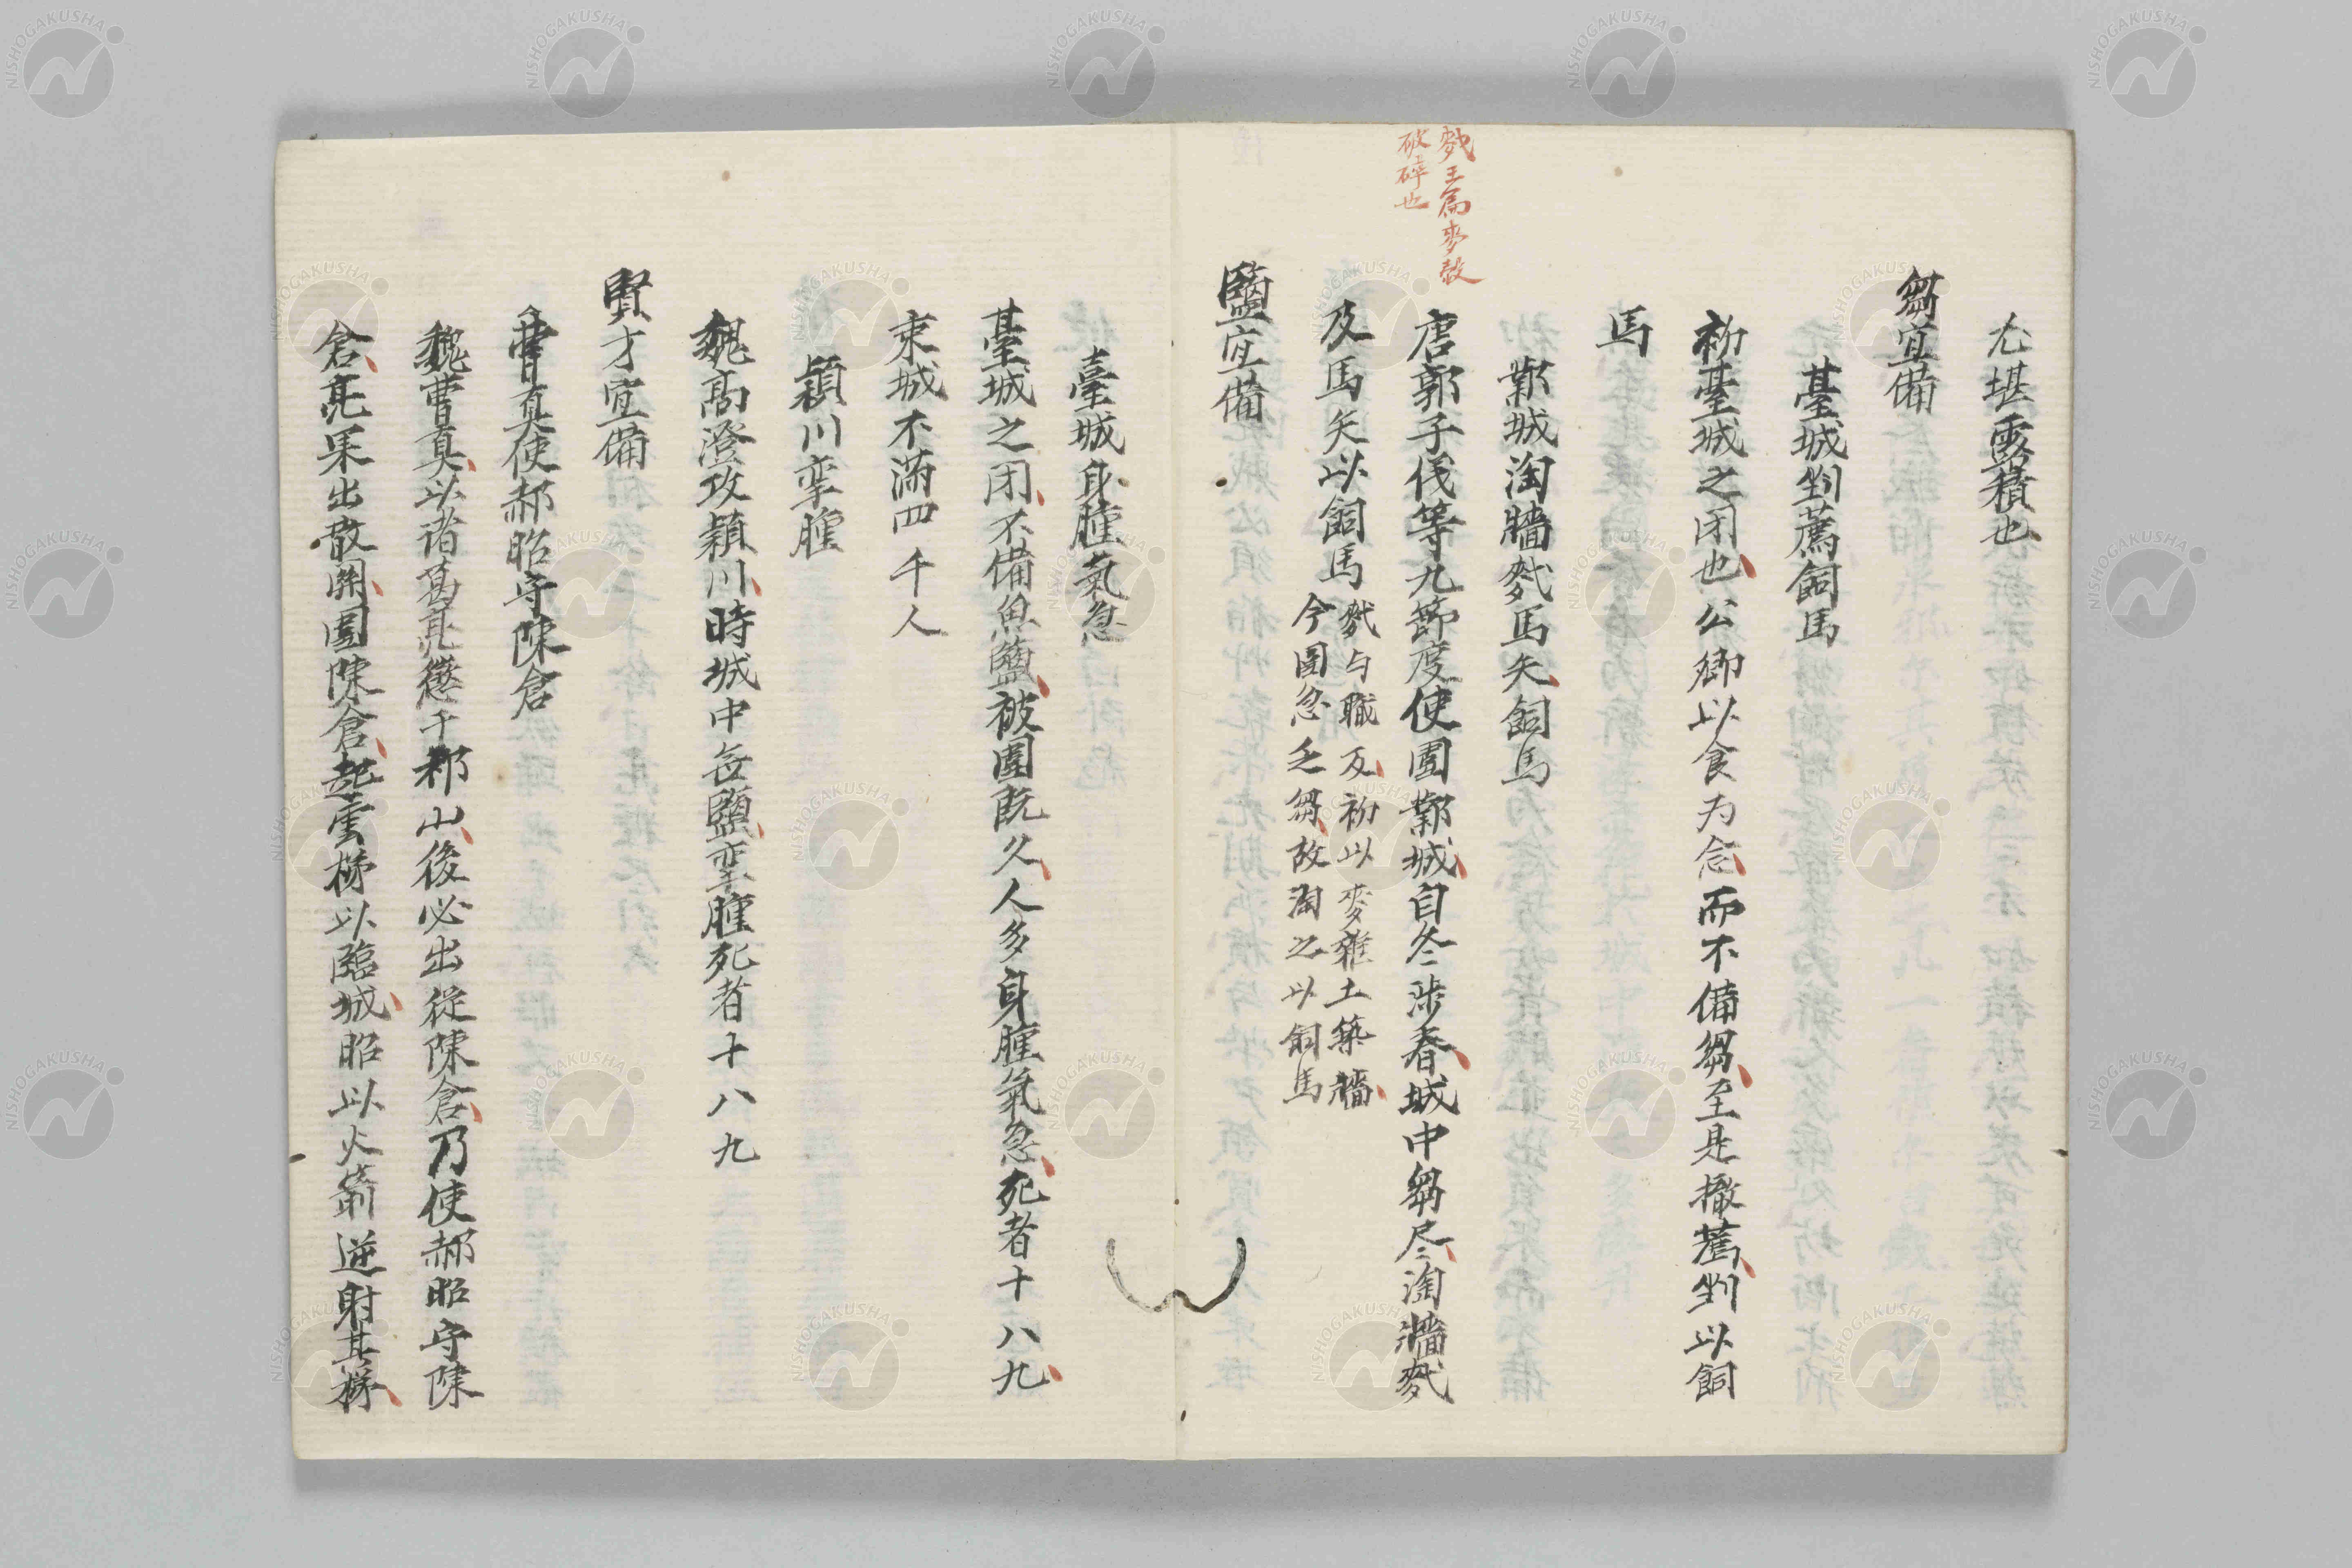 尤堪露積也
芻宜備
臺城剉薦飼馬
初臺城之閉也公卿以食为念而不備芻至是撤薦剉以飼
馬
鄴城淘牆麩馬矢飼馬
唐郭子儀等九節度使圍鄴城自冬涉春城中芻尽淘牆麩
及馬矢以飼馬
麩与職反初以麥雜土築牆
今圍急乏芻故淘之以飼馬
破碎也
鹽宜備
臺城身腫氣急
臺城之閉不備魚鹽被圍既久人多身腫氣急死者十八九
東城不滿四千人
潁川孿腫
魏高澄攻潁川時城中無鹽孿腫死者十八九
賢才宜備
曹真使郝昭守陳倉
魏曹真以诸葛亮懲于祁山後必出從陳倉乃使郝昭守陳
倉亮果出散関圍陳倉起雲梯以臨城昭以火箭逆射其梯
NISHOGAKUSHA